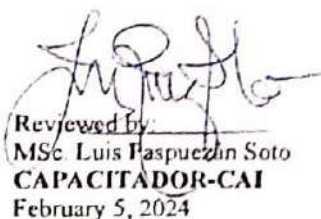 Reviewed by:
MSc. Luis Paspuezán Soto
CAPACITADOR-CAI
February 5, 2024